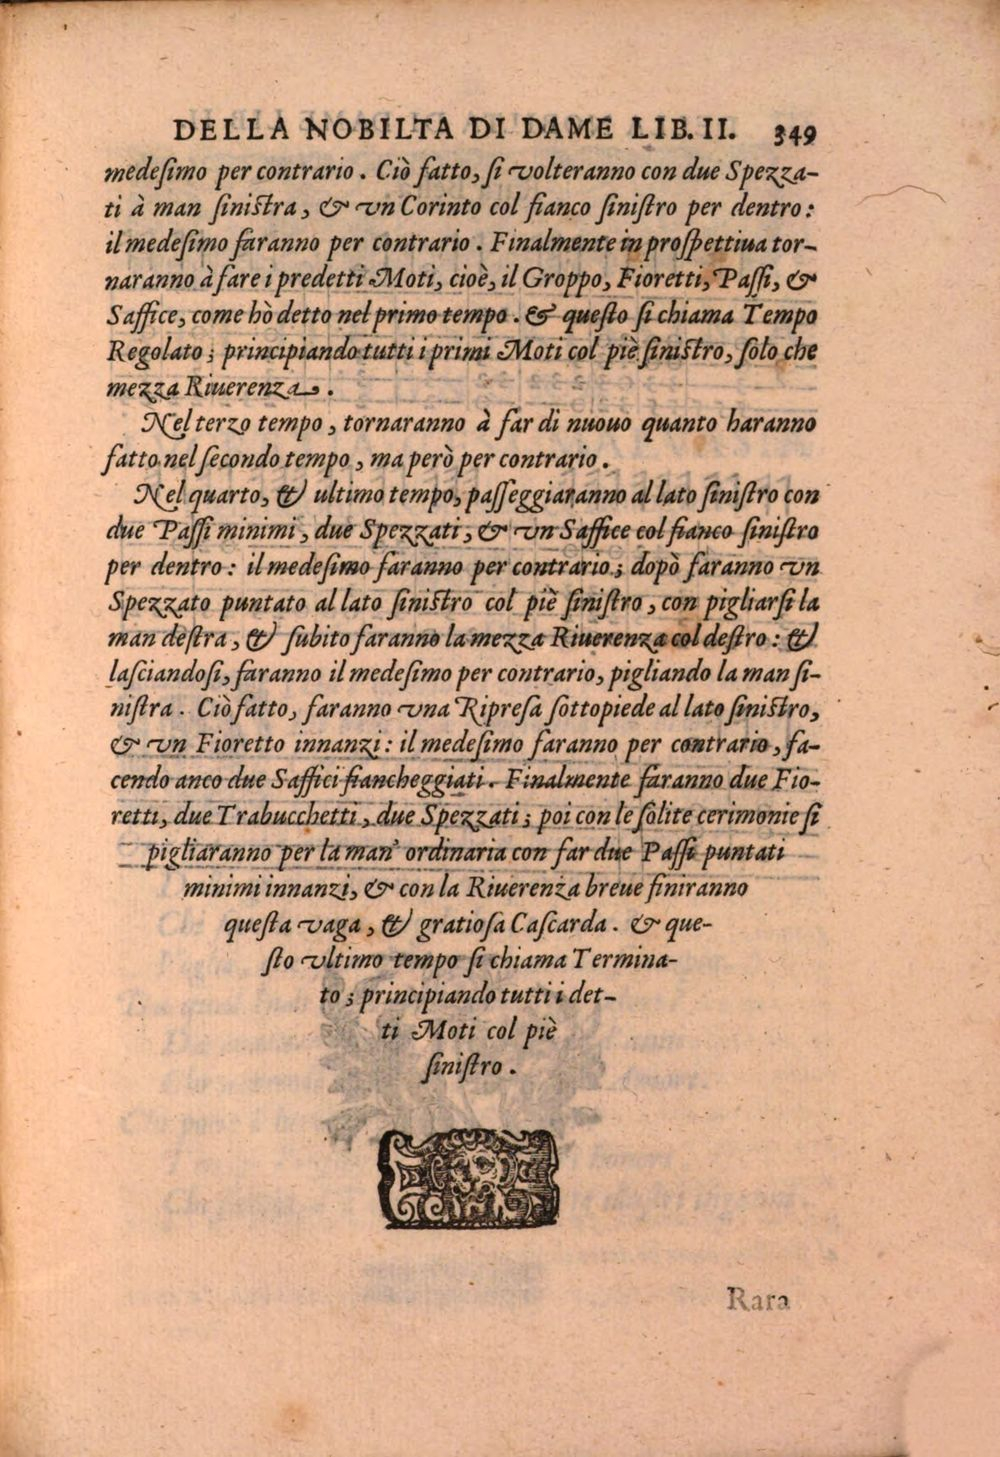 DELLA NOBILTA DI DAME LIB. II. 349
medeſimo per contrario. Ciò fatto, ſi volteranno con due Spezza-
ti à man ſiniſtra, & vn Corinto col fianco ſiniſtro per dentro:
il medeſimo faranno per contrario. Finalmente in proſpettiua tor-
naranno à fare i predetti Moti, cioè, il Groppo, Fioretti, Paſſi, &
Saffice, come hò detto nel primo tempo. & queſto ſi chiama Tempo
Regolato; principiando tutti i primi Moti col piè ſiniſtro, ſolo che
mezza Riuerenza.
Nel terzo tempo, tornaranno à far di nuouo quanto haranno
fatto nel ſecondo tempo, ma però per contrario.
Nel quarto, & ultimo tempo, paſſeggiaranno al lato ſiniſtro con
due Paſſi minimi, due Spezzati, & vn Saffice col fianco ſiniſtro
per dentro: il medeſimo faranno per contrario; dopò faranno vn
Spezzato puntato al lato ſiniſtro col piè ſiniſtro, con pigliarſi la
man deſtra, & ſubito faranno la mezza Riuerenza col deſtro: &
laſciandoſi, faranno il medeſimo per contrario, pigliando la man ſi-
niſtra. Ciò fatto, faranno vna Ripreſa ſottopiede al lato ſiniſtro,
& vn Fioretto innanzi: il medeſimo faranno per contrario, fa-
cendo anco due Saffici fiancheggiati. Finalmente faranno due Fio-
retti, due Trabucchetti, due Spezzati; poi con le ſolite cerimonie ſi
pigliaranno per la man' ordinaria con far due Paſſi puntati
minimi innanzi, & con la Riuerenza breue finiranno
queſta vaga, & gratioſa Caſcarda. & que-
ſto vltimo tempo ſi chiama Termina-
to; principiando tutti i det-
ti Moti col piè
ſiniſtro.
Rara